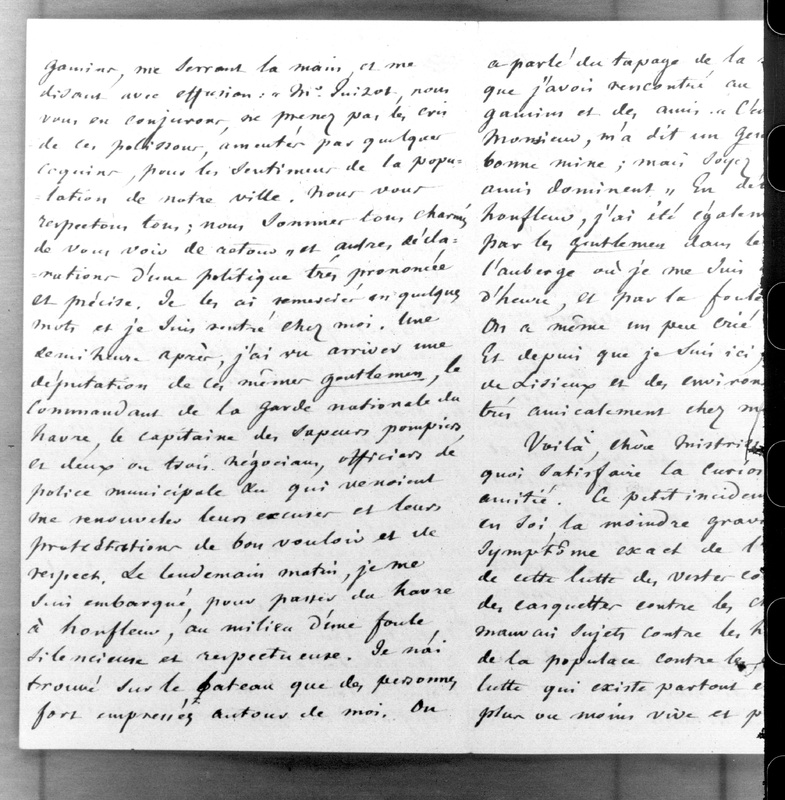 gamins, me serrant la main, et me
disant avec effusion: « Mr. Guizot, nous
vous en conjurons, ne prenez pas les cris
de ces polissons, ameutés par quelques
coquins, pour les sentimens de la popu=
=lation de notre ville. Nous vous
respectons tous; nous sommes tous charmés
de vous voir de retour » et autres décla=
=rations d'une politique très prononcée
et précise. Je les ai remerciés en quelques
mots et je suis rentré chez moi. Une
demiheure après, j'ai vu arriver une
députation de ces mêmes gentlemen, le
Commandant de la garde nationale du
havre, le capitaine des sapeurs pompiers
et deux ou trois négocians, officiers de
police municipale &a qui venoient
me renouveler leurs excuses et leurs
protestations de bon vouloir et de
respect. Le lendemain matin, je me
suis embarqué, pour passer du havre
à honfleur, au milieu d'une foule
silencieuse et respectueuse. Je n'ai
trouvé sur le bateau que des personnes
fort empressées autour de moi. On
a parlé du tapage de la
que j'avois rencontré au
gamins et des amis. « C'e
Monsieur, m'a dit un gen
bonne mine; mais soyez
amis dominent » En dé
honfleur, j'ai été égalem
par les gentlemen dans le
l'auberge où je me suis
d'heure, et par la foule
On a même un peu crié
Et depuis que je suis ici,
de Lisieux et des environ
très amicalement chez m
Voilà, chère Mistriss
quoi satisfaire la curios
amitié. Ce petit inciden
en soi la moindre grav
symptôme exact de l'
de cette lutte des vestes co
des casquettes contre les c
mauvais sujets contre les h
de la populace contre les
lutte qui existe partout e
plus ou moins vive et p